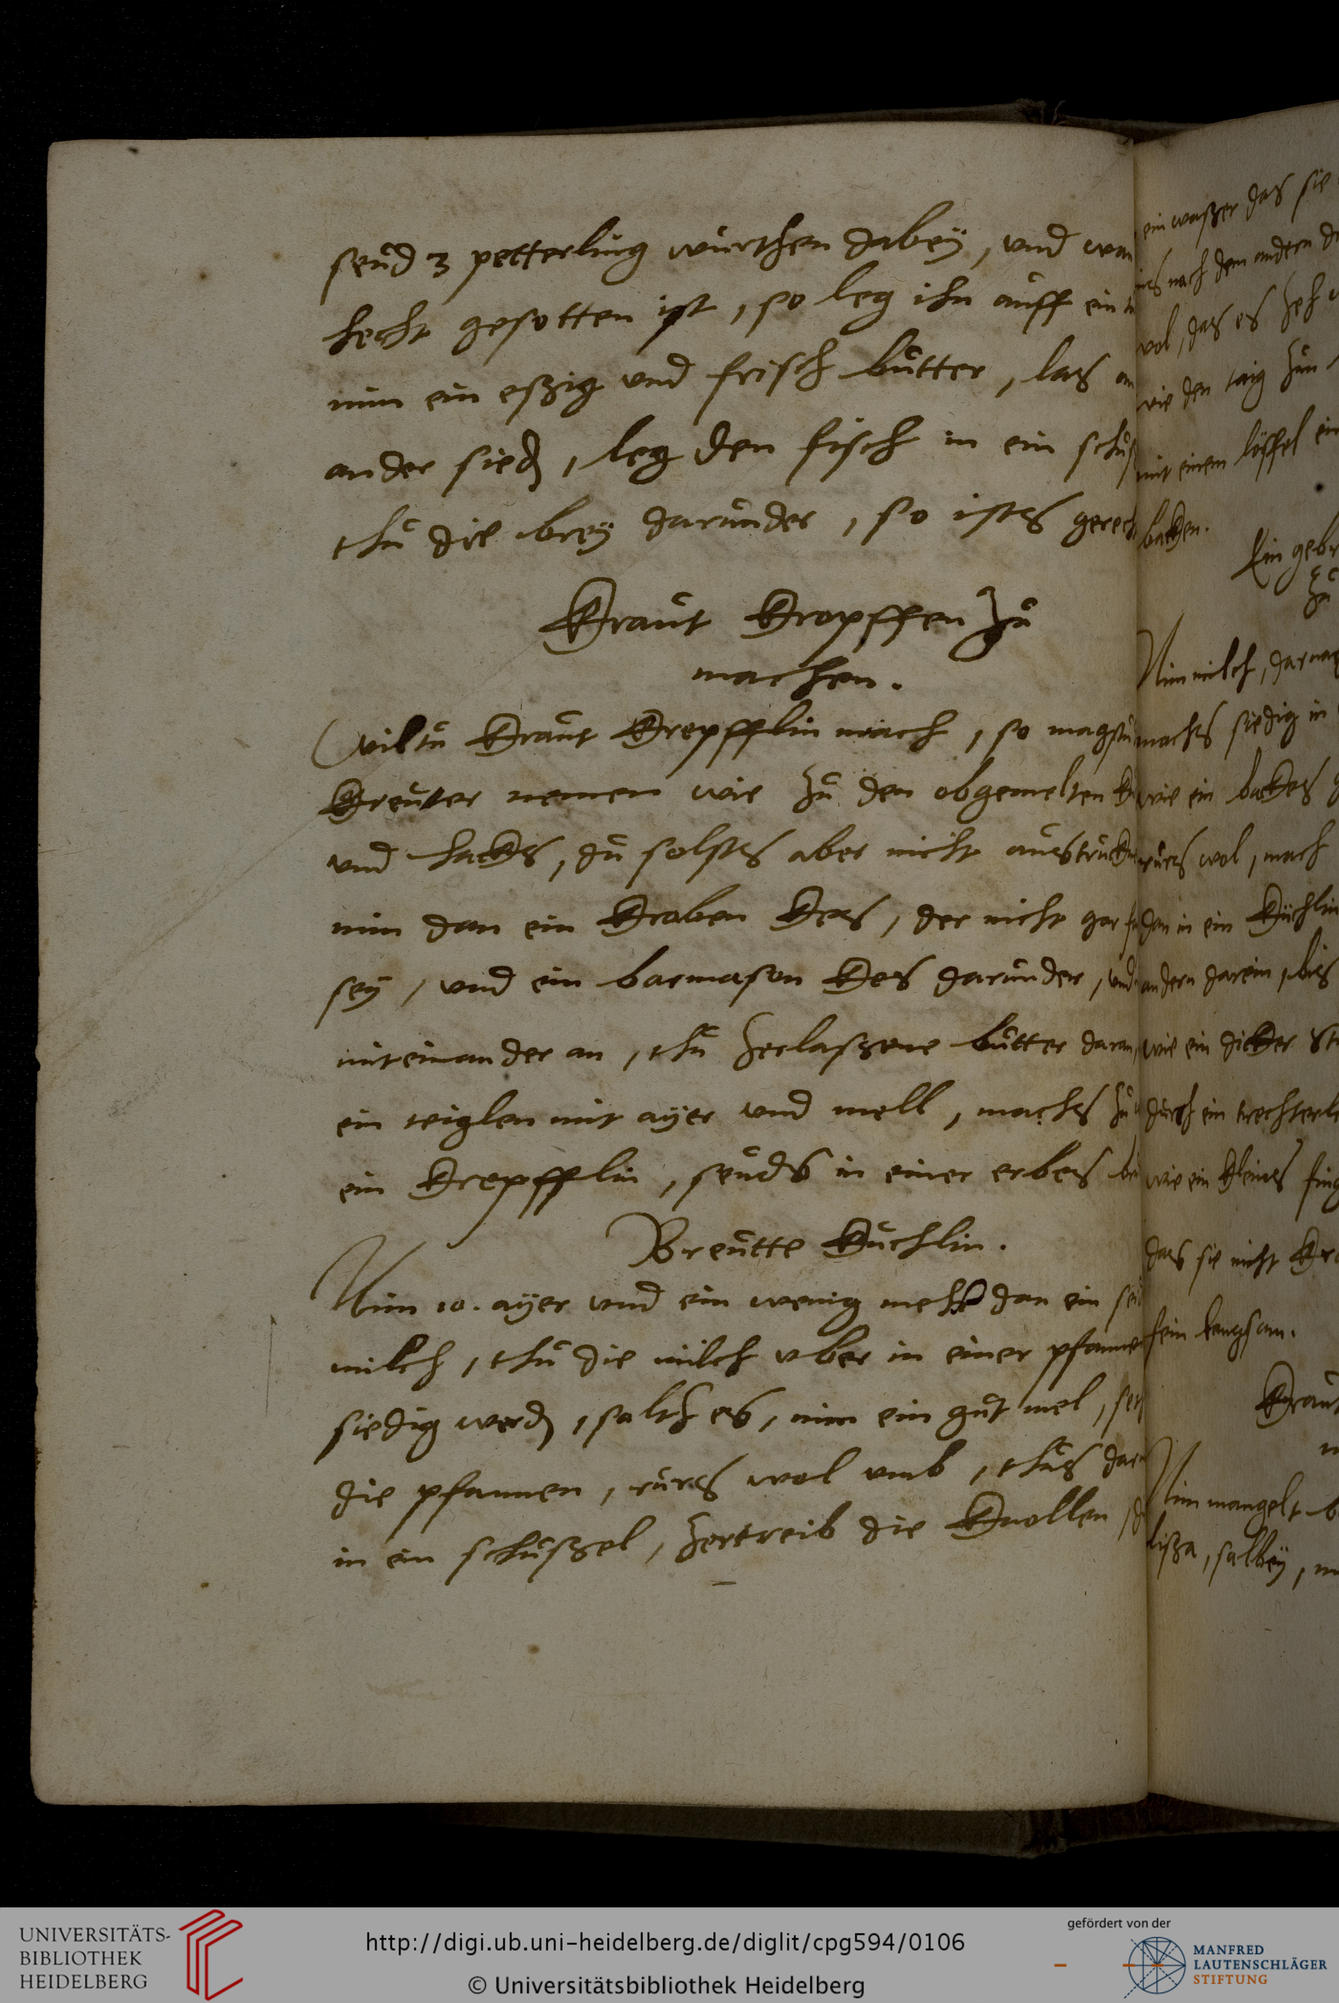 seud 3 petterling wurtzen dabey, und wan
hecht gesotten ist, so leg ihn auff ein
nim ein eßzig und frisch butter, las
ander sied, leg den fisch in ein schuß
thu die brey darunder, so ists gerech
Kraut Kropffen zu
machen.
Wiltu Kraut Krepfflin mach, so magstu
Kreutter nemen wie zu den obgemelten
und hacks, du solsts aber nicht austruck
nim dan ein Kroben Kes, der nicht gar
sey, und ein barmason Kes darunder, und
miteinander an, thu zerlaßene butter daran,
ein teiglen mit ayer und mell, machs zu
ein Krepfflin, seuds in einer erbes
Breutte Kuchlin.
Nim 10. ayer und ein wenig mehr dan ein
milch, thu die milch uber in einer pfanne
siedig werd, saltz es, nim ein gut mel,
die pfannen, rurs wol umb, thus
in ein schußel, zertreib die Knollen,
ein waßer das sie
nach dem andern
wol, das es zeh
wie den taig zun
mit einem löffel ein
backen.
Ein gebr
zu
Nim milch, darnach
machs siedig in
wie ein backes
rurs wol, mach
dan in ein Küchlin
andern darein, bis
wie ein dicker
durch ein trechterl
wie ein Kleines fing
das sie nicht
fein langsam.
Kraut
Nim mangelt
salbey,
UNIVERSITÄTS-
BIBLIOTHEK
HEIDELBERG
http://digi.ub.uni-heidelberg.de/diglit/cpg594/0106
© Universitätsbibliothek Heidelberg
gefördert von der
MANFRED
LAUTENSCHLÄGER
STIFTUNG